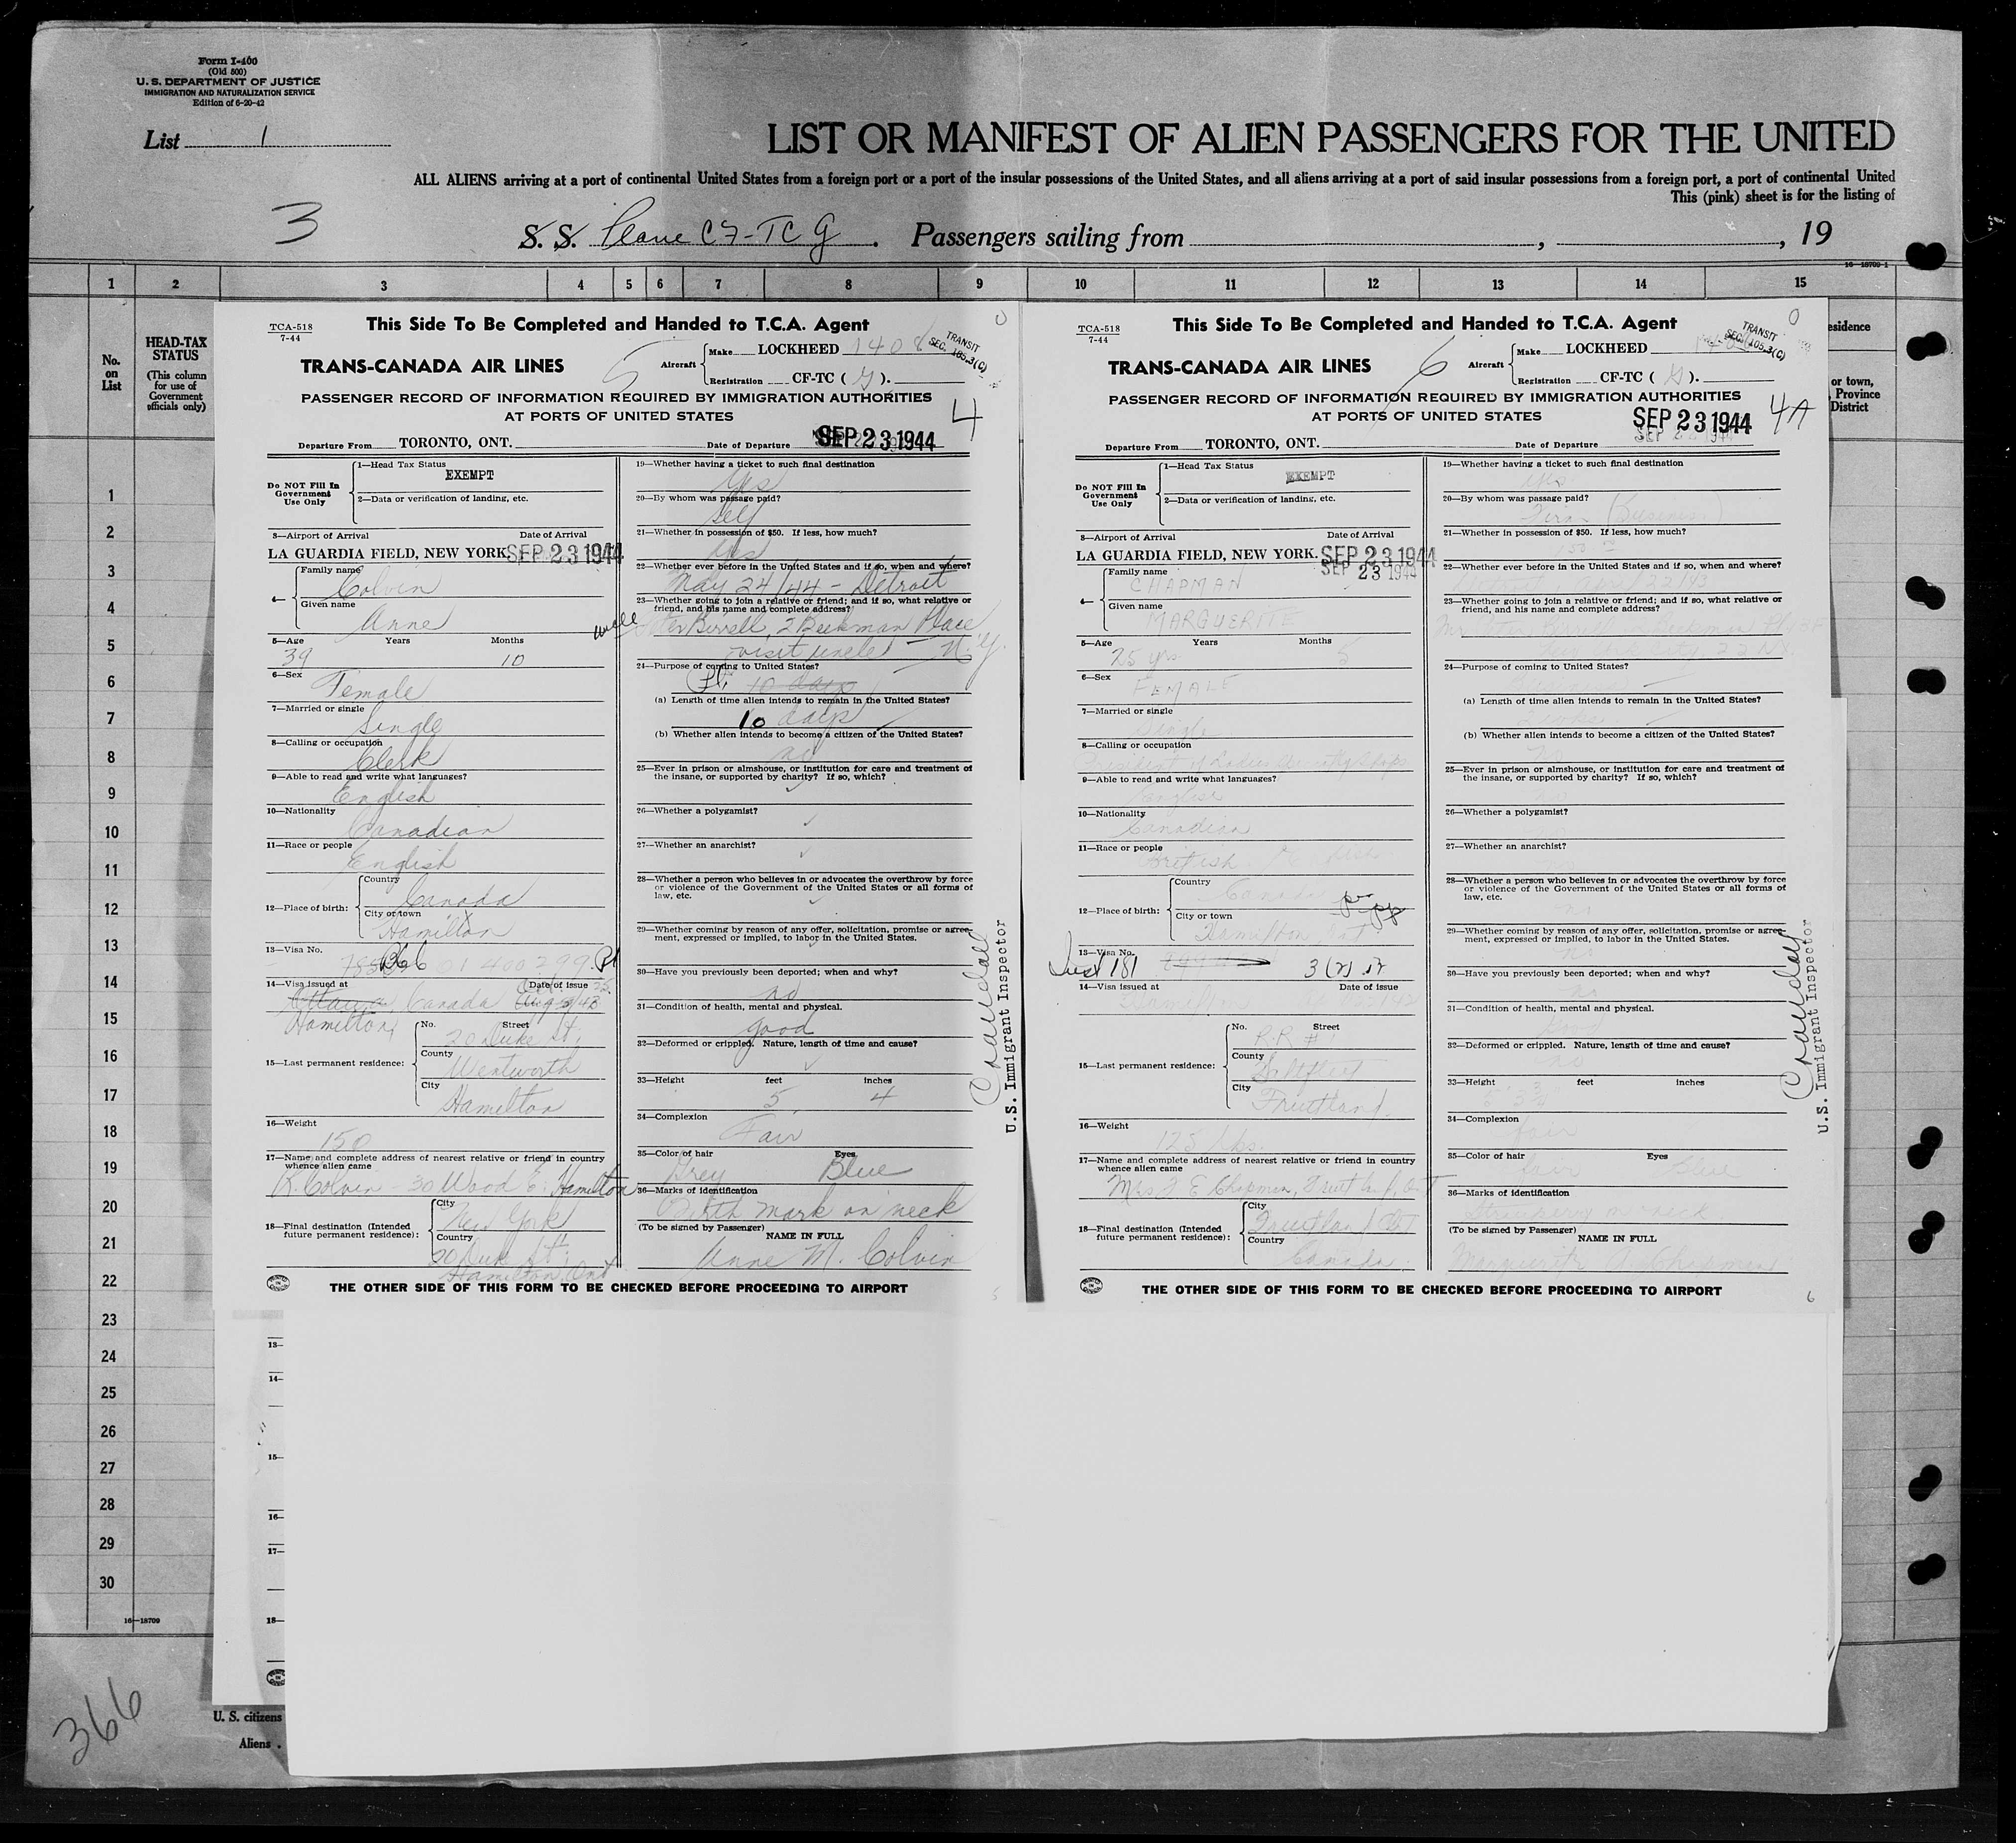 Form I-400
(Old 500)
U. S. DEPARTMENT OF JUSTICE
IMMIGRATION AND NATURALIZATION SERVICE
Edition of 6-20-42
List 1
LIST OR MANIFEST OF ALIEN PASSENGERS FOR THE UNITED
ALL ALIENS arriving at a port of continental United States from a foreign port or a port of the insular possessions of the United States, and all aliens arriving at a port of said insular possessions from a foreign port, a port of continental United
This (pink) sheet is for the listing of
3
S. S. Plane CF-TCG. Passengers sailing from , , 19
16—18709-1
1 2 3 4 5 6 7 8 9 10 11 12 13 14 15
No. on List
HEAD-TAX STATUS
(This column for use of Government officials only)
esidence
or town, Province District
TCA-518
7-44
This Side To Be Completed and Handed to T.C.A. Agent
TRANS-CANADA AIR LINES
5
Aircraft
Make LOCKHEED 1408
Registration CF-TC ( G ).
TRANSIT
SEC. 105.3(C)
PASSENGER RECORD OF INFORMATION REQUIRED BY IMMIGRATION AUTHORITIES
AT PORTS OF UNITED STATES
4
Departure From TORONTO, ONT. Date of Departure SEP 23 1944
Do NOT Fill In Government Use Only
1—Head Tax Status
EXEMPT
2—Data or verification of landing, etc.
3—Airport of Arrival Date of Arrival
LA GUARDIA FIELD, NEW YORK. SEP 23 1944
4—
Family name
Colvin
Given name
Anne
5—Age Years Months
39 10
6—Sex
Female
7—Married or single
Single
8—Calling or occupation
Clerk
9—Able to read and write what languages?
English
10—Nationality
Canadian
11—Race or people
English
12—Place of birth:
Country
Canada
City or town
Hamilton
13—Visa No.
14—Visa issued at Date of issue
Ottawa, Canada
Hamilton
15—Last permanent residence:
No. Street
20 Duke St.
County
Wentworth
City
Hamilton
16—Weight
150
17—Name and complete address of nearest relative or friend in country whence alien came
K. Colvin - 30 Wood E. Hamilton
18—Final destination (Intended future permanent residence):
City
New York
Country
20 Duke St.
Hamilton, Ont
19—Whether having a ticket to such final destination
Yes
20—By whom was passage paid?
Self
21—Whether in possession of $50. If less, how much?
Yes
22—Whether ever before in the United States and if so, when and where?
May 24/44 - Detroit
23—Whether going to join a relative or friend; and if so, what relative or friend, and his name and complete address?
uncle Birrell, 2 Beekman Place
visit uncle N.Y.
24—Purpose of coming to United States?
10 days
(a) Length of time alien intends to remain in the United States?
10 days
(b) Whether alien intends to become a citizen of the United States?
no
25—Ever in prison or almshouse, or institution for care and treatment of the insane, or supported by charity? If so, which?
26—Whether a polygamist?
27—Whether an anarchist?
28—Whether a person who believes in or advocates the overthrow by force or violence of the Government of the United States or all forms of law, etc.
29—Whether coming by reason of any offer, solicitation, promise or agreement, expressed or implied, to labor in the United States.
30—Have you previously been deported; when and why?
no
31—Condition of health, mental and physical.
good
32—Deformed or crippled. Nature, length of time and cause?
33—Height feet inches
5 4
34—Complexion
Fair
35—Color of hair Eyes
Grey Blue
36—Marks of identification
Birth mark on neck
(To be signed by Passenger)
NAME IN FULL
Anne M. Colvin
Crandall
U.S. Immigrant Inspector
THE OTHER SIDE OF THIS FORM TO BE CHECKED BEFORE PROCEEDING TO AIRPORT
5
TCA-518
7-44
This Side To Be Completed and Handed to T.C.A. Agent
TRANS-CANADA AIR LINES
6
Aircraft
Make LOCKHEED
Registration CF-TC ( G ).
TRANSIT
SEC. 105.3(C)
PASSENGER RECORD OF INFORMATION REQUIRED BY IMMIGRATION AUTHORITIES
AT PORTS OF UNITED STATES
4A
Departure From TORONTO, ONT. Date of Departure SEP 23 1944
Do NOT Fill In Government Use Only
1—Head Tax Status
EXEMPT
2—Data or verification of landing, etc.
3—Airport of Arrival Date of Arrival
LA GUARDIA FIELD, NEW YORK. SEP 23 1944
SEP 23 1944
4—
Family name
CHAPMAN
Given name
MARGUERITE
5—Age Years Months
25 yrs 5
6—Sex
FEMALE
7—Married or single
Single
8—Calling or occupation
President of Ladies Shops
9—Able to read and write what languages?
English
10—Nationality
Canadian
11—Race or people
British
12—Place of birth:
Country
Canada
City or town
Hamilton, Ont.
13—Visa No.
181 3(2)
14—Visa issued at Date of issue
15—Last permanent residence:
No. Street
R.R # 1
County
Saltfleet
City
Fruitland
16—Weight
125 lbs.
17—Name and complete address of nearest relative or friend in country whence alien came
Mrs. F E Chapman, Fruitland, Ont
18—Final destination (Intended future permanent residence):
City
Fruitland Ont
Country
Canada
19—Whether having a ticket to such final destination
yes
20—By whom was passage paid?
Firm (Business)
21—Whether in possession of $50. If less, how much?
22—Whether ever before in the United States and if so, when and where?
23—Whether going to join a relative or friend; and if so, what relative or friend, and his name and complete address?
24—Purpose of coming to United States?
(a) Length of time alien intends to remain in the United States?
(b) Whether alien intends to become a citizen of the United States?
25—Ever in prison or almshouse, or institution for care and treatment of the insane, or supported by charity? If so, which?
26—Whether a polygamist?
27—Whether an anarchist?
28—Whether a person who believes in or advocates the overthrow by force or violence of the Government of the United States or all forms of law, etc.
no
29—Whether coming by reason of any offer, solicitation, promise or agreement, expressed or implied, to labor in the United States.
no
30—Have you previously been deported; when and why?
no
31—Condition of health, mental and physical.
32—Deformed or crippled. Nature, length of time and cause?
no
33—Height feet inches
5' 3 3/4
34—Complexion
fair
35—Color of hair Eyes
Blue
36—Marks of identification
(To be signed by Passenger)
NAME IN FULL
Marguerite Chapman
Crandall
U.S. Immigrant Inspector
THE OTHER SIDE OF THIS FORM TO BE CHECKED BEFORE PROCEEDING TO AIRPORT
6
1
2
3
4
5
6
7
8
9
10
11
12
13
14
15
16
17
18
19
20
21
22
23
24
25
26
27
28
29
30
13—
14—
15—
16—
17—
18—
16—18709
366
U. S. citizens
Aliens .